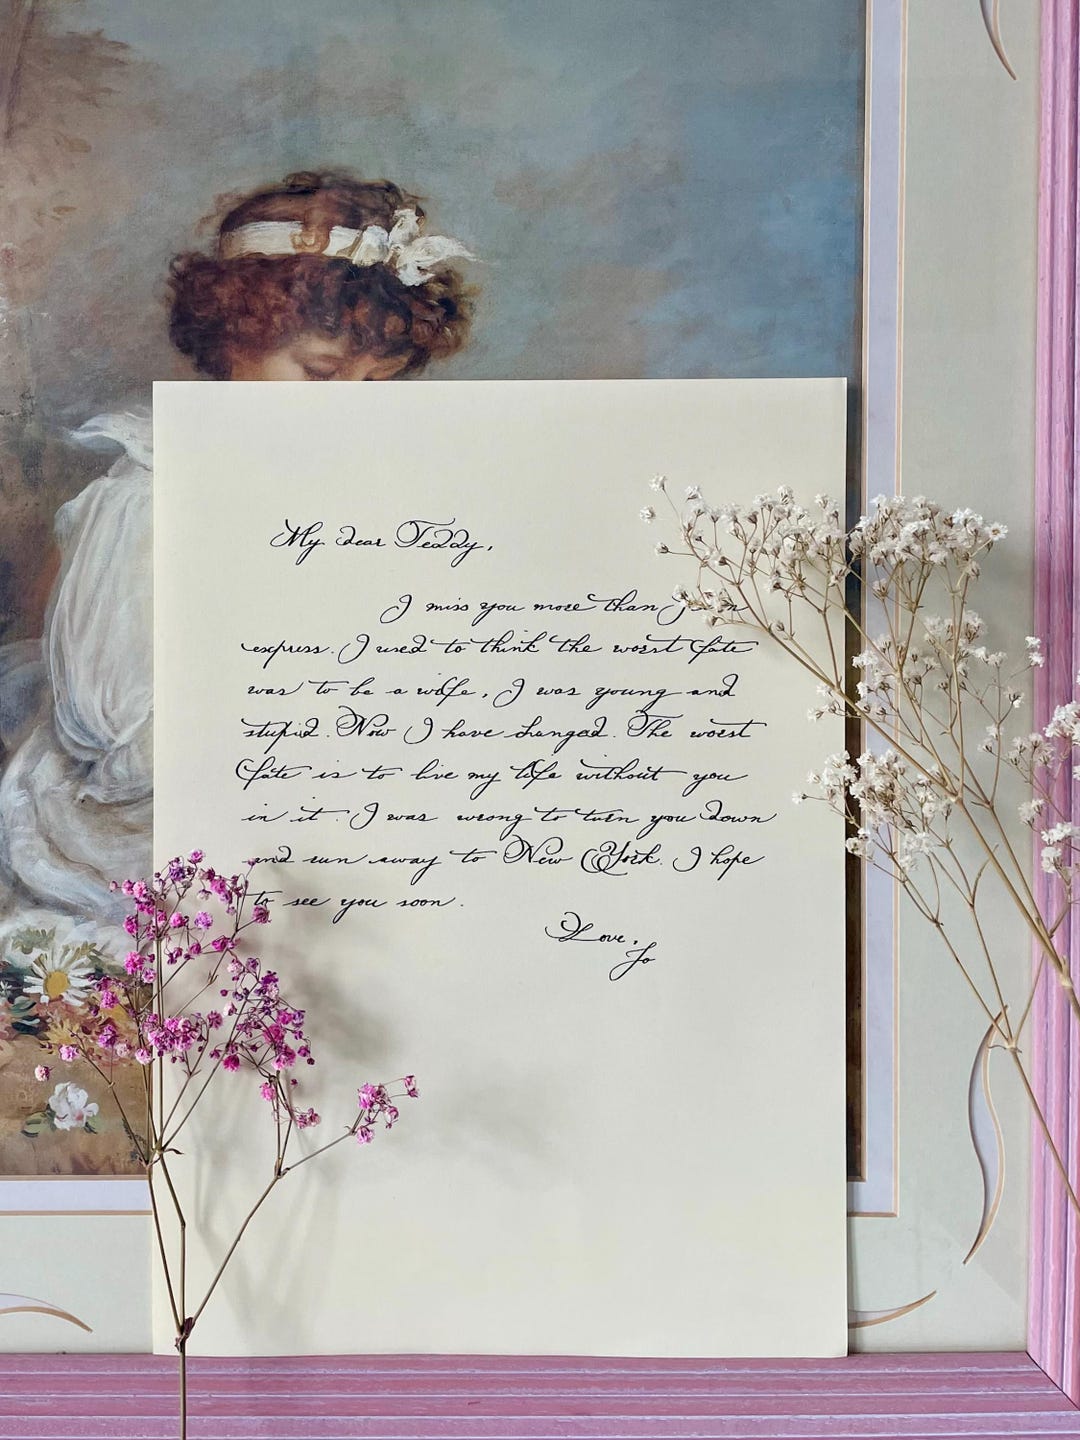 My dear Teddy,
I miss you more than I
express. I used to think the worst fate
was to be a wife, I was young and
stupid. Now I have changed. The worst
fate is to live my life without you
in it. I was wrong to turn you down
and run away to New York. I hope
to see you soon.
Love,
Jo